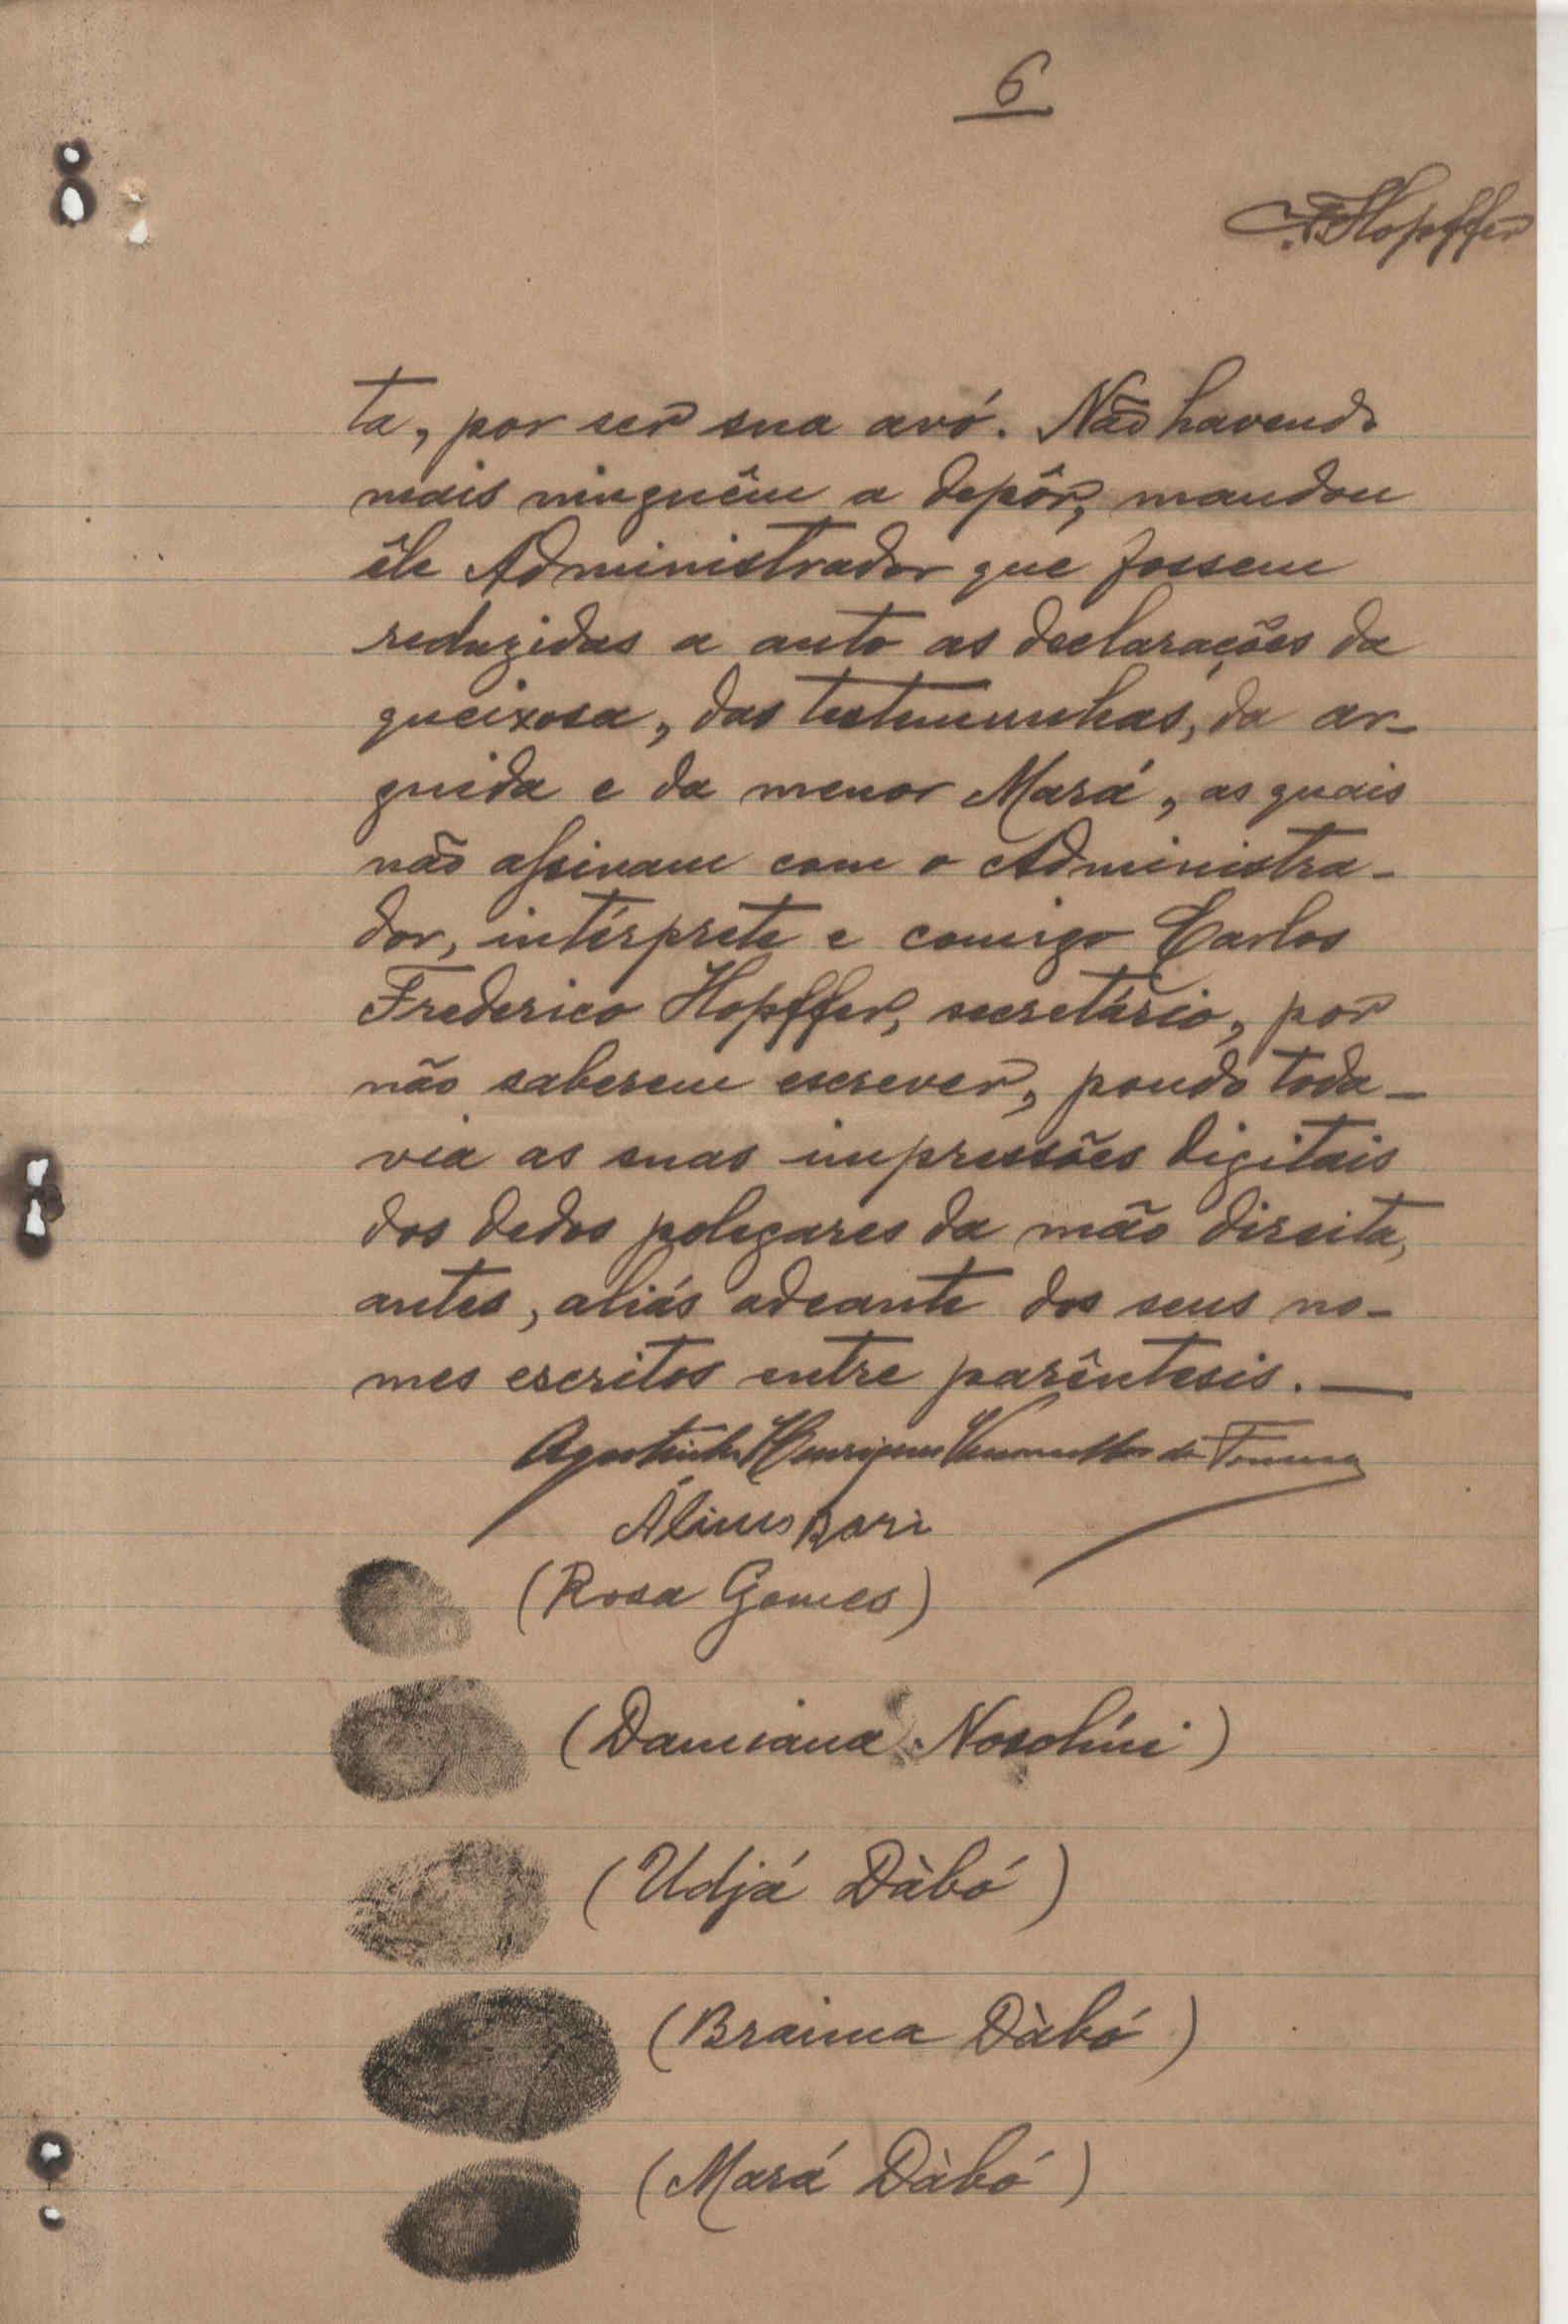 6
F. Hopffer
ta, por ser sua avó. Não havendo
mais ninguêm a depôr, mandou
êle Administrador que fossem
reduzidas a auto as declarações da
queixosa, das testemunhas, da ar-
guida e da menor Mará, as quais
não assinam com o Administra-
dor, intérprete e comigo Carlos
Frederico Hopffer, secretário, por
não saberem escrever, pondo toda-
via as suas impressões digitais
dos dedos polegares da mão direita,
antes, aliás adeante dos seus no-
mes escritos entre parêntesis. —
Agostinho Henriques
(Rosa Gomes)
(Damiana Nosolíni)
(Udjá Dàbó)
(Braima Dàbó)
(Mará Dàbó)